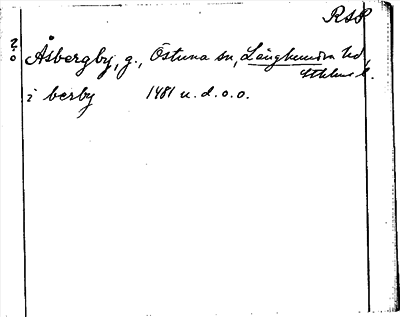 RSP
?
o
Åsbergby, g., Östuna sn, Långhundra hd,
Sthlms l.
i berby 1481 u.d.o.o.